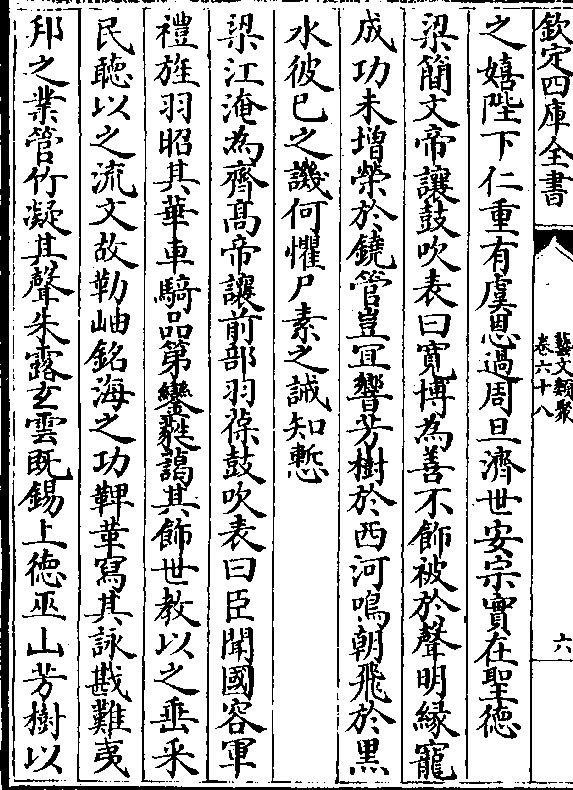 欽定四庫全書
藝文類聚
卷六十八
六
之嬉陛下仁重有虞恩過周旦濟世安宗實在聖德
梁簡文帝讓鼓吹表曰寛博為善不飾被於聲明緣寵
成功未增榮於鐃管豈宜響芳樹於西河鳴朝飛於黒
水彼已之譏何懼尸素之誠知慙
梁江淹為齊髙帝讓前部羽葆鼓吹表曰臣聞國容軍
禮旌羽昭其華車騎品第鑾㲯藹其飾世教以之垂采
民聴以之流文故勒岫銘海之功鞞革寫其詠戡難夷
邦之業管竹凝其聲朱露玄雲既錫上徳巫山芳樹以